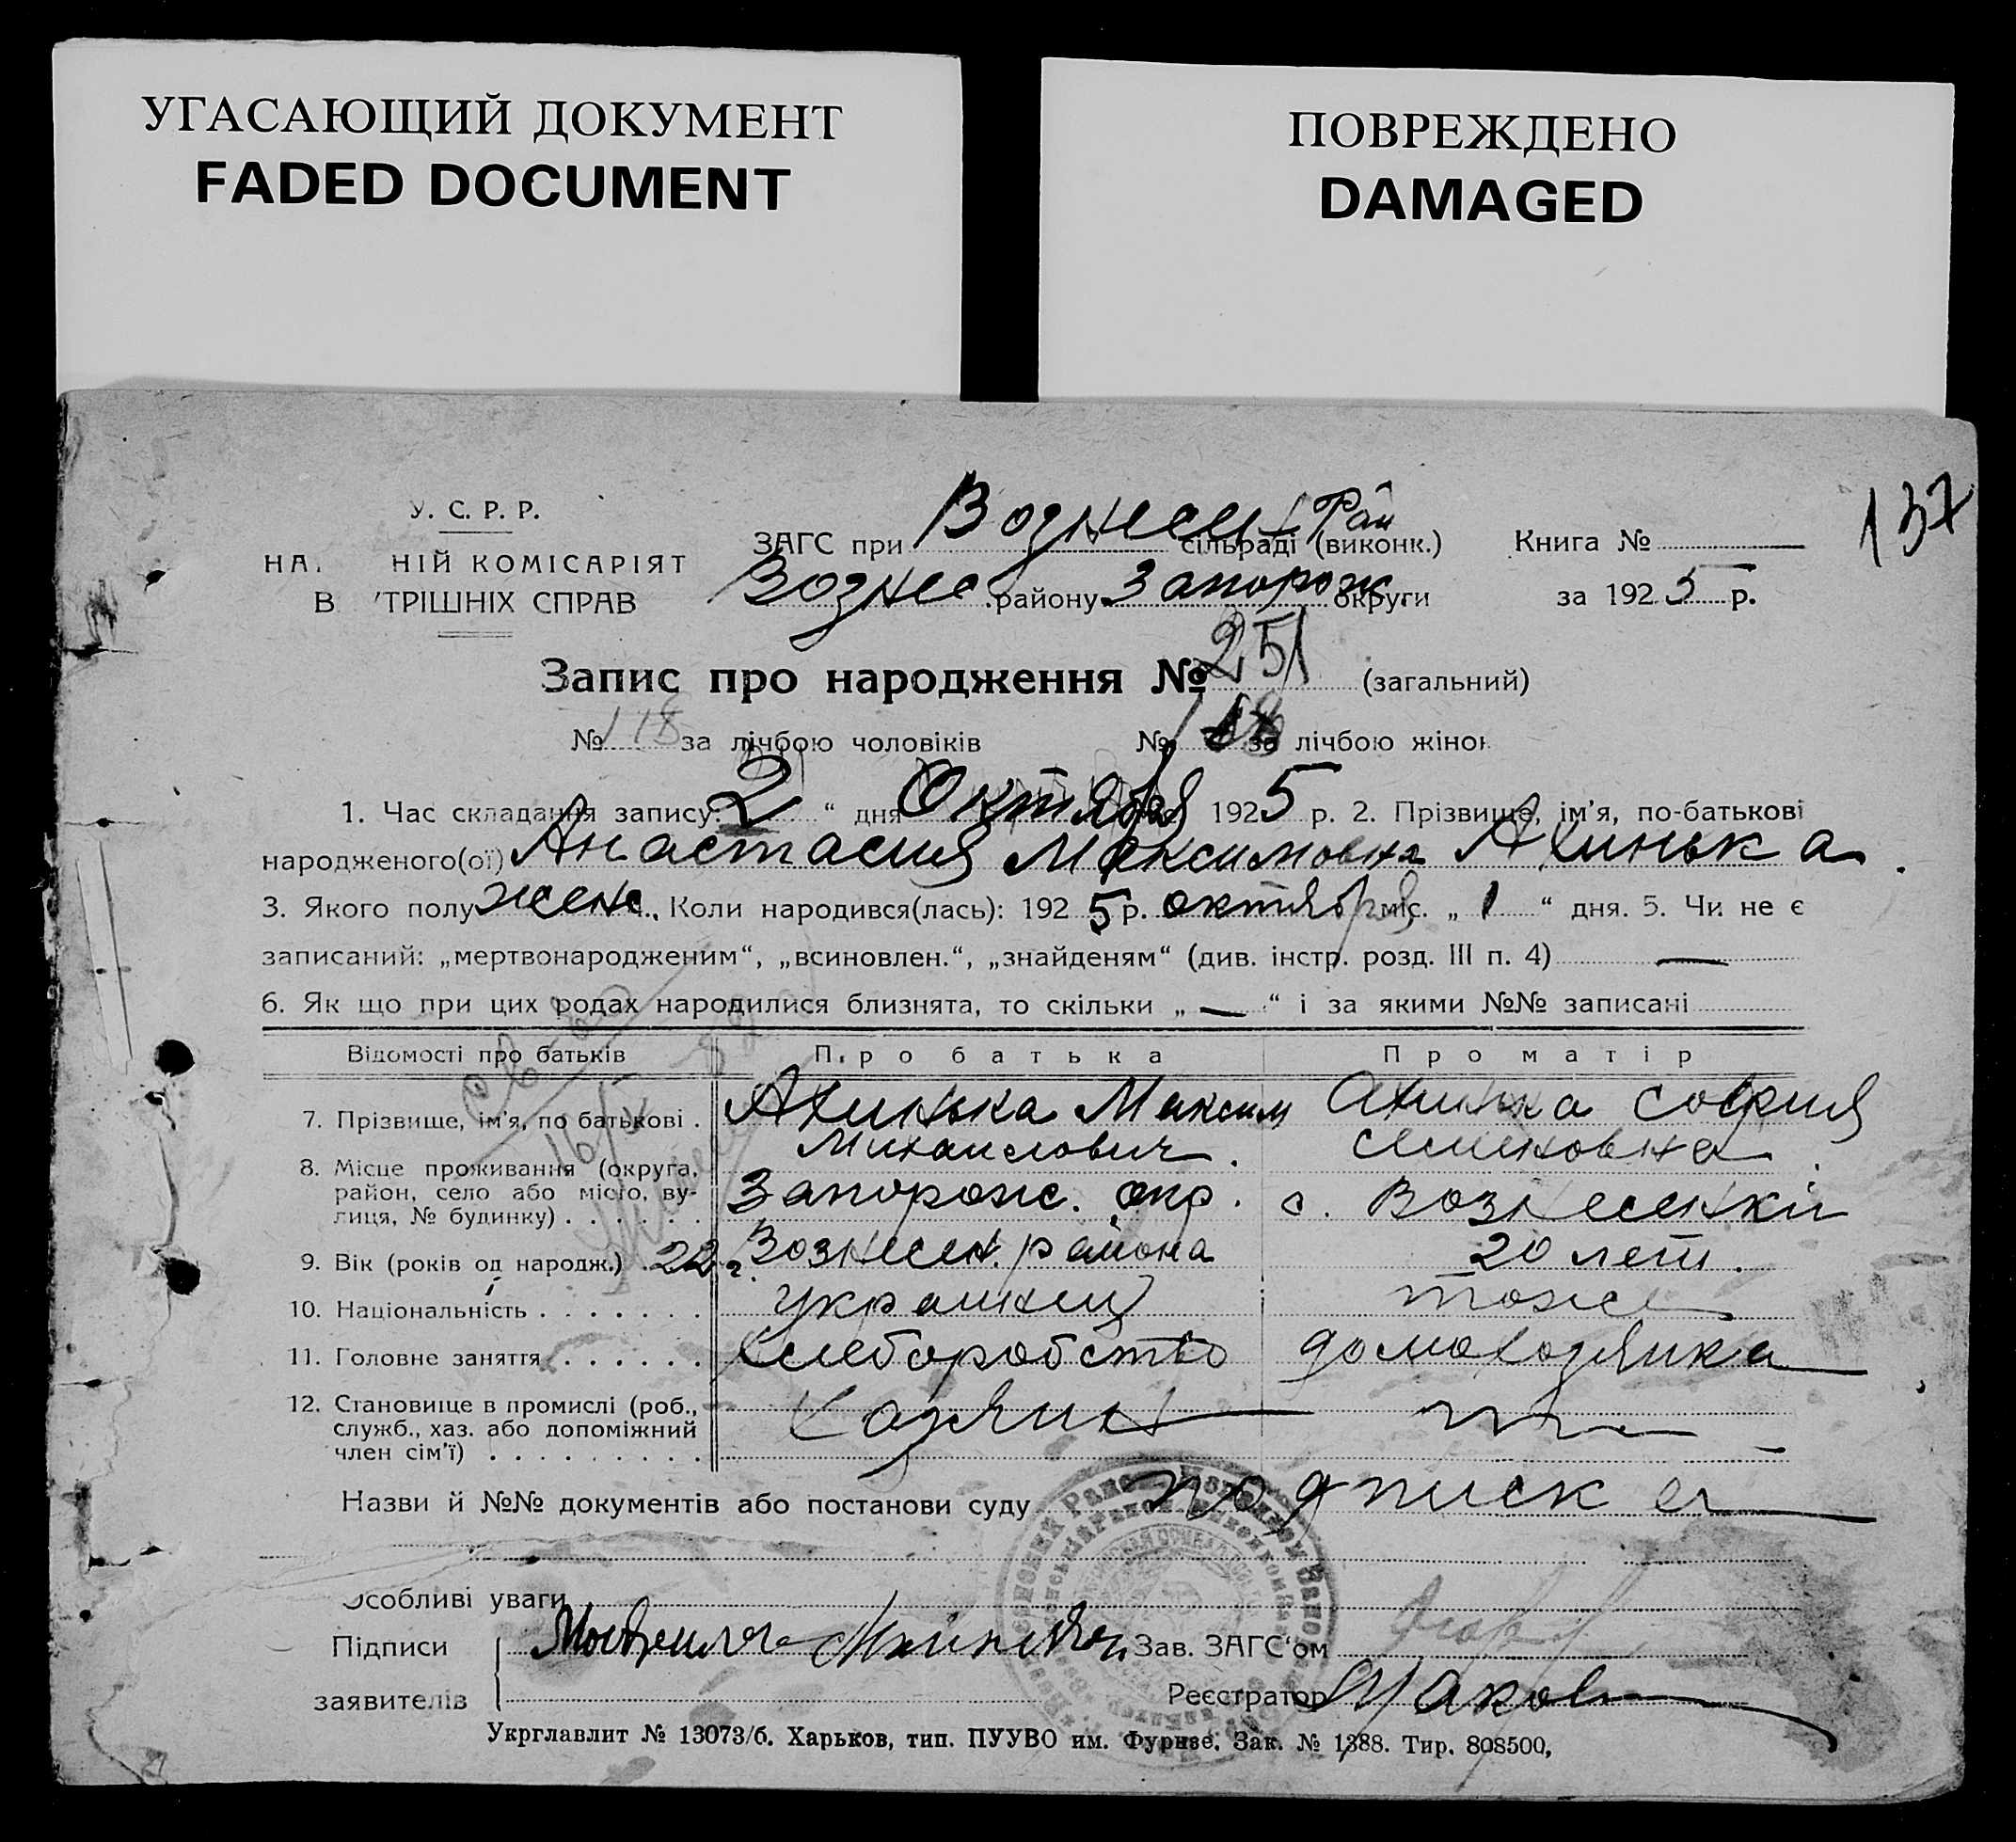 УГАСАЮЩИЙ ДОКУМЕНТ
FADED DOCUMENT
ПОВРЕЖДЕНО
DAMAGED
137
У. С. Р. Р.
НА НІЙ КОМІСАРІЯТ
В ТРІШНІХ СПРАВ
ЗАГС при Вознесен Рай сільраді (виконк.)
Вознес. району Запорож. округи
Книга №
за 1925 р.
Запис про народження № 251 (загальний)
№ 118 за лічбою чоловіків № за лічбою жінок
1. Час складання запису: 2 “ дня Октября 1925 р. 2. Прізвище, ім'я, по-батькові
народженого(ої) Анастасия Максимовна Ахинька
3. Якого полу женс. Коли народився(лась): 1925 р. октября міс. „ 1 “ дня. 5. Чи не є
записаний: „мертвонародженим“, „всиновлен.“, „знайденям“ (див. інстр. розд. III п. 4) —
6. Як що при цих родах народилися близнята, то скільки „ — “ і за якими №№ записані
Відомості про батьків Про батька Про матір
7. Прізвище, ім'я, по батькові . Ахинька Максим Михаилович. Ахинька София Семеновна
8. Місце проживання (округа, район, село або місто, вулиця, № будинку) . . . . . . Запорож. окр. с. Вознесенки
Вознесен. района
9. Вік (років од народж.) . 22 г. 20 лет.
10. Національність . . . . . . . украинец тоже
11. Головне заняття . . . . . . Хлеборобство домохозяйка
12. Становище в промислі (роб., служб., хаз. або допоміжний член сім'ї) . . . . . . . . . Хозяин
Назви й №№ документів або постанови суду подписка
Особливі уваги
Підписи
Зав. ЗАГС‘ом
заявителів
Реєстратор
Укрглавлит № 13073/б. Харьков, тип. ПУУВО им. Фрунзе. Зак. № 1388. Тир. 808500,